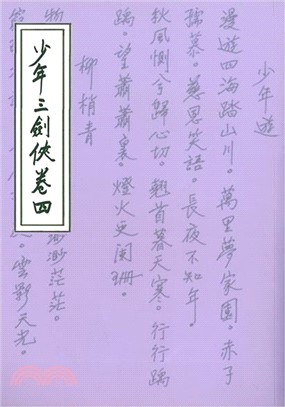 少年三劍俠卷四
少年遊
漫遊四海踏山川。萬里夢家園。赤子
孺慕。慈思笑語。長夜不知年。
秋風惻兮歸心切。翹首暮天寒。行行踽
踽。望蕭蕭裏。燈火更闌珊。
柳梢青
物
渺茫茫。
雲影天光。
三民